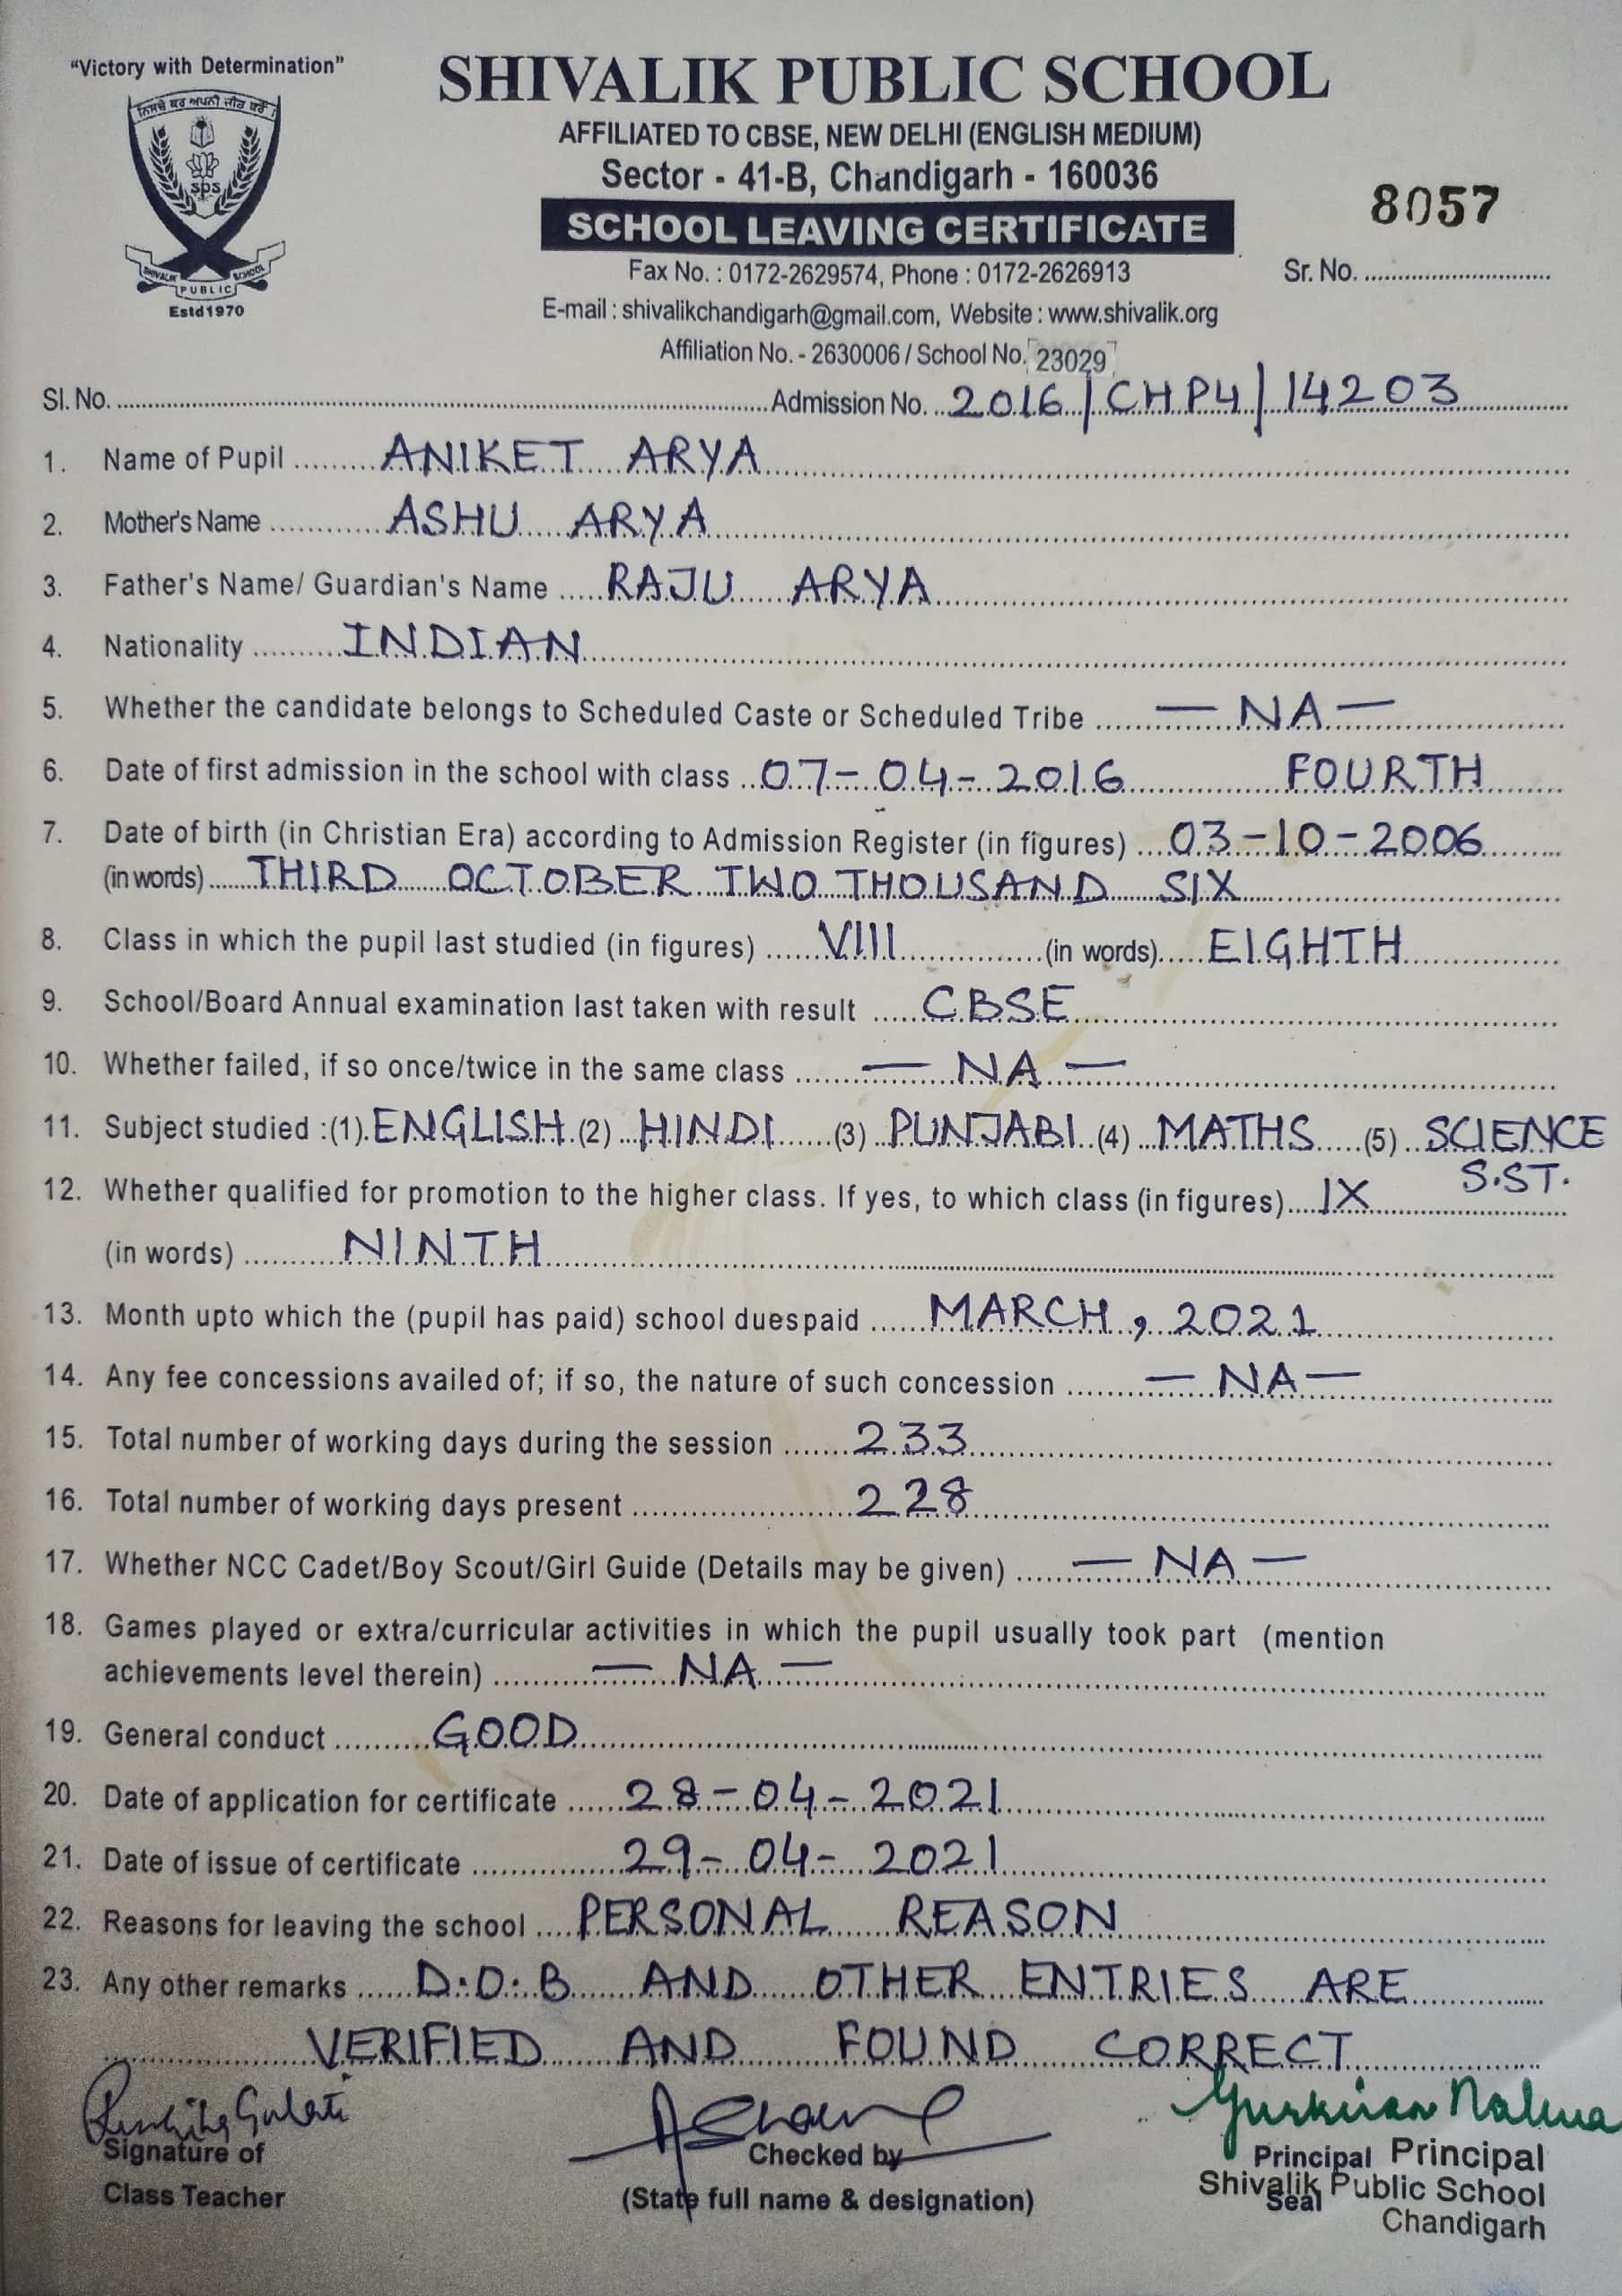 "Victory with Determination"
ਨਿਸਚੈ ਕਰ ਅਪਨੀ ਜੀਤ ਕਰੋਂ
sps
SHIVALIK PUBLIC SCHOOL
Estd1970
SHIVALIK PUBLIC SCHOOL
AFFILIATED TO CBSE, NEW DELHI (ENGLISH MEDIUM)
Sector - 41-B, Chandigarh - 160036
8057
SCHOOL LEAVING CERTIFICATE
Fax No. : 0172-2629574, Phone : 0172-2626913
Sr. No. ..............................
E-mail : shivalikchandigarh@gmail.com, Website : www.shivalik.org
Affiliation No. - 2630006 / School No. 23029
Sl. No. .............................. Admission No. 2016/CHP4/14203
1. Name of Pupil ANIKET ARYA
2. Mother's Name ASHU ARYA
3. Father's Name/ Guardian's Name RAJU ARYA
4. Nationality INDIAN
5. Whether the candidate belongs to Scheduled Caste or Scheduled Tribe — NA —
6. Date of first admission in the school with class 07-04-2016 FOURTH
7. Date of birth (in Christian Era) according to Admission Register (in figures) 03-10-2006
(in words) THIRD OCTOBER TWO THOUSAND SIX
8. Class in which the pupil last studied (in figures) VIII (in words) EIGHTH
9. School/Board Annual examination last taken with result CBSE
10. Whether failed, if so once/twice in the same class — NA —
11. Subject studied :(1) ENGLISH (2) HINDI (3) PUNJABI (4) MATHS (5) SCIENCE
S.ST.
12. Whether qualified for promotion to the higher class. If yes, to which class (in figures) IX
(in words) NINTH
13. Month upto which the (pupil has paid) school duespaid MARCH, 2021
14. Any fee concessions availed of; if so, the nature of such concession — NA —
15. Total number of working days during the session 233
16. Total number of working days present 228
17. Whether NCC Cadet/Boy Scout/Girl Guide (Details may be given) — NA —
18. Games played or extra/curricular activities in which the pupil usually took part (mention
achievements level therein) — NA —
19. General conduct GOOD
20. Date of application for certificate 28-04-2021
21. Date of issue of certificate 29-04-2021
22. Reasons for leaving the school PERSONAL REASON
23. Any other remarks D.O.B AND OTHER ENTRIES ARE
VERIFIED AND FOUND CORRECT
Gulati
Gurkiran
Signature of
Class Teacher
Checked by
(State full name & designation)
Principal
Seal
Principal
Shivalik Public School
Chandigarh